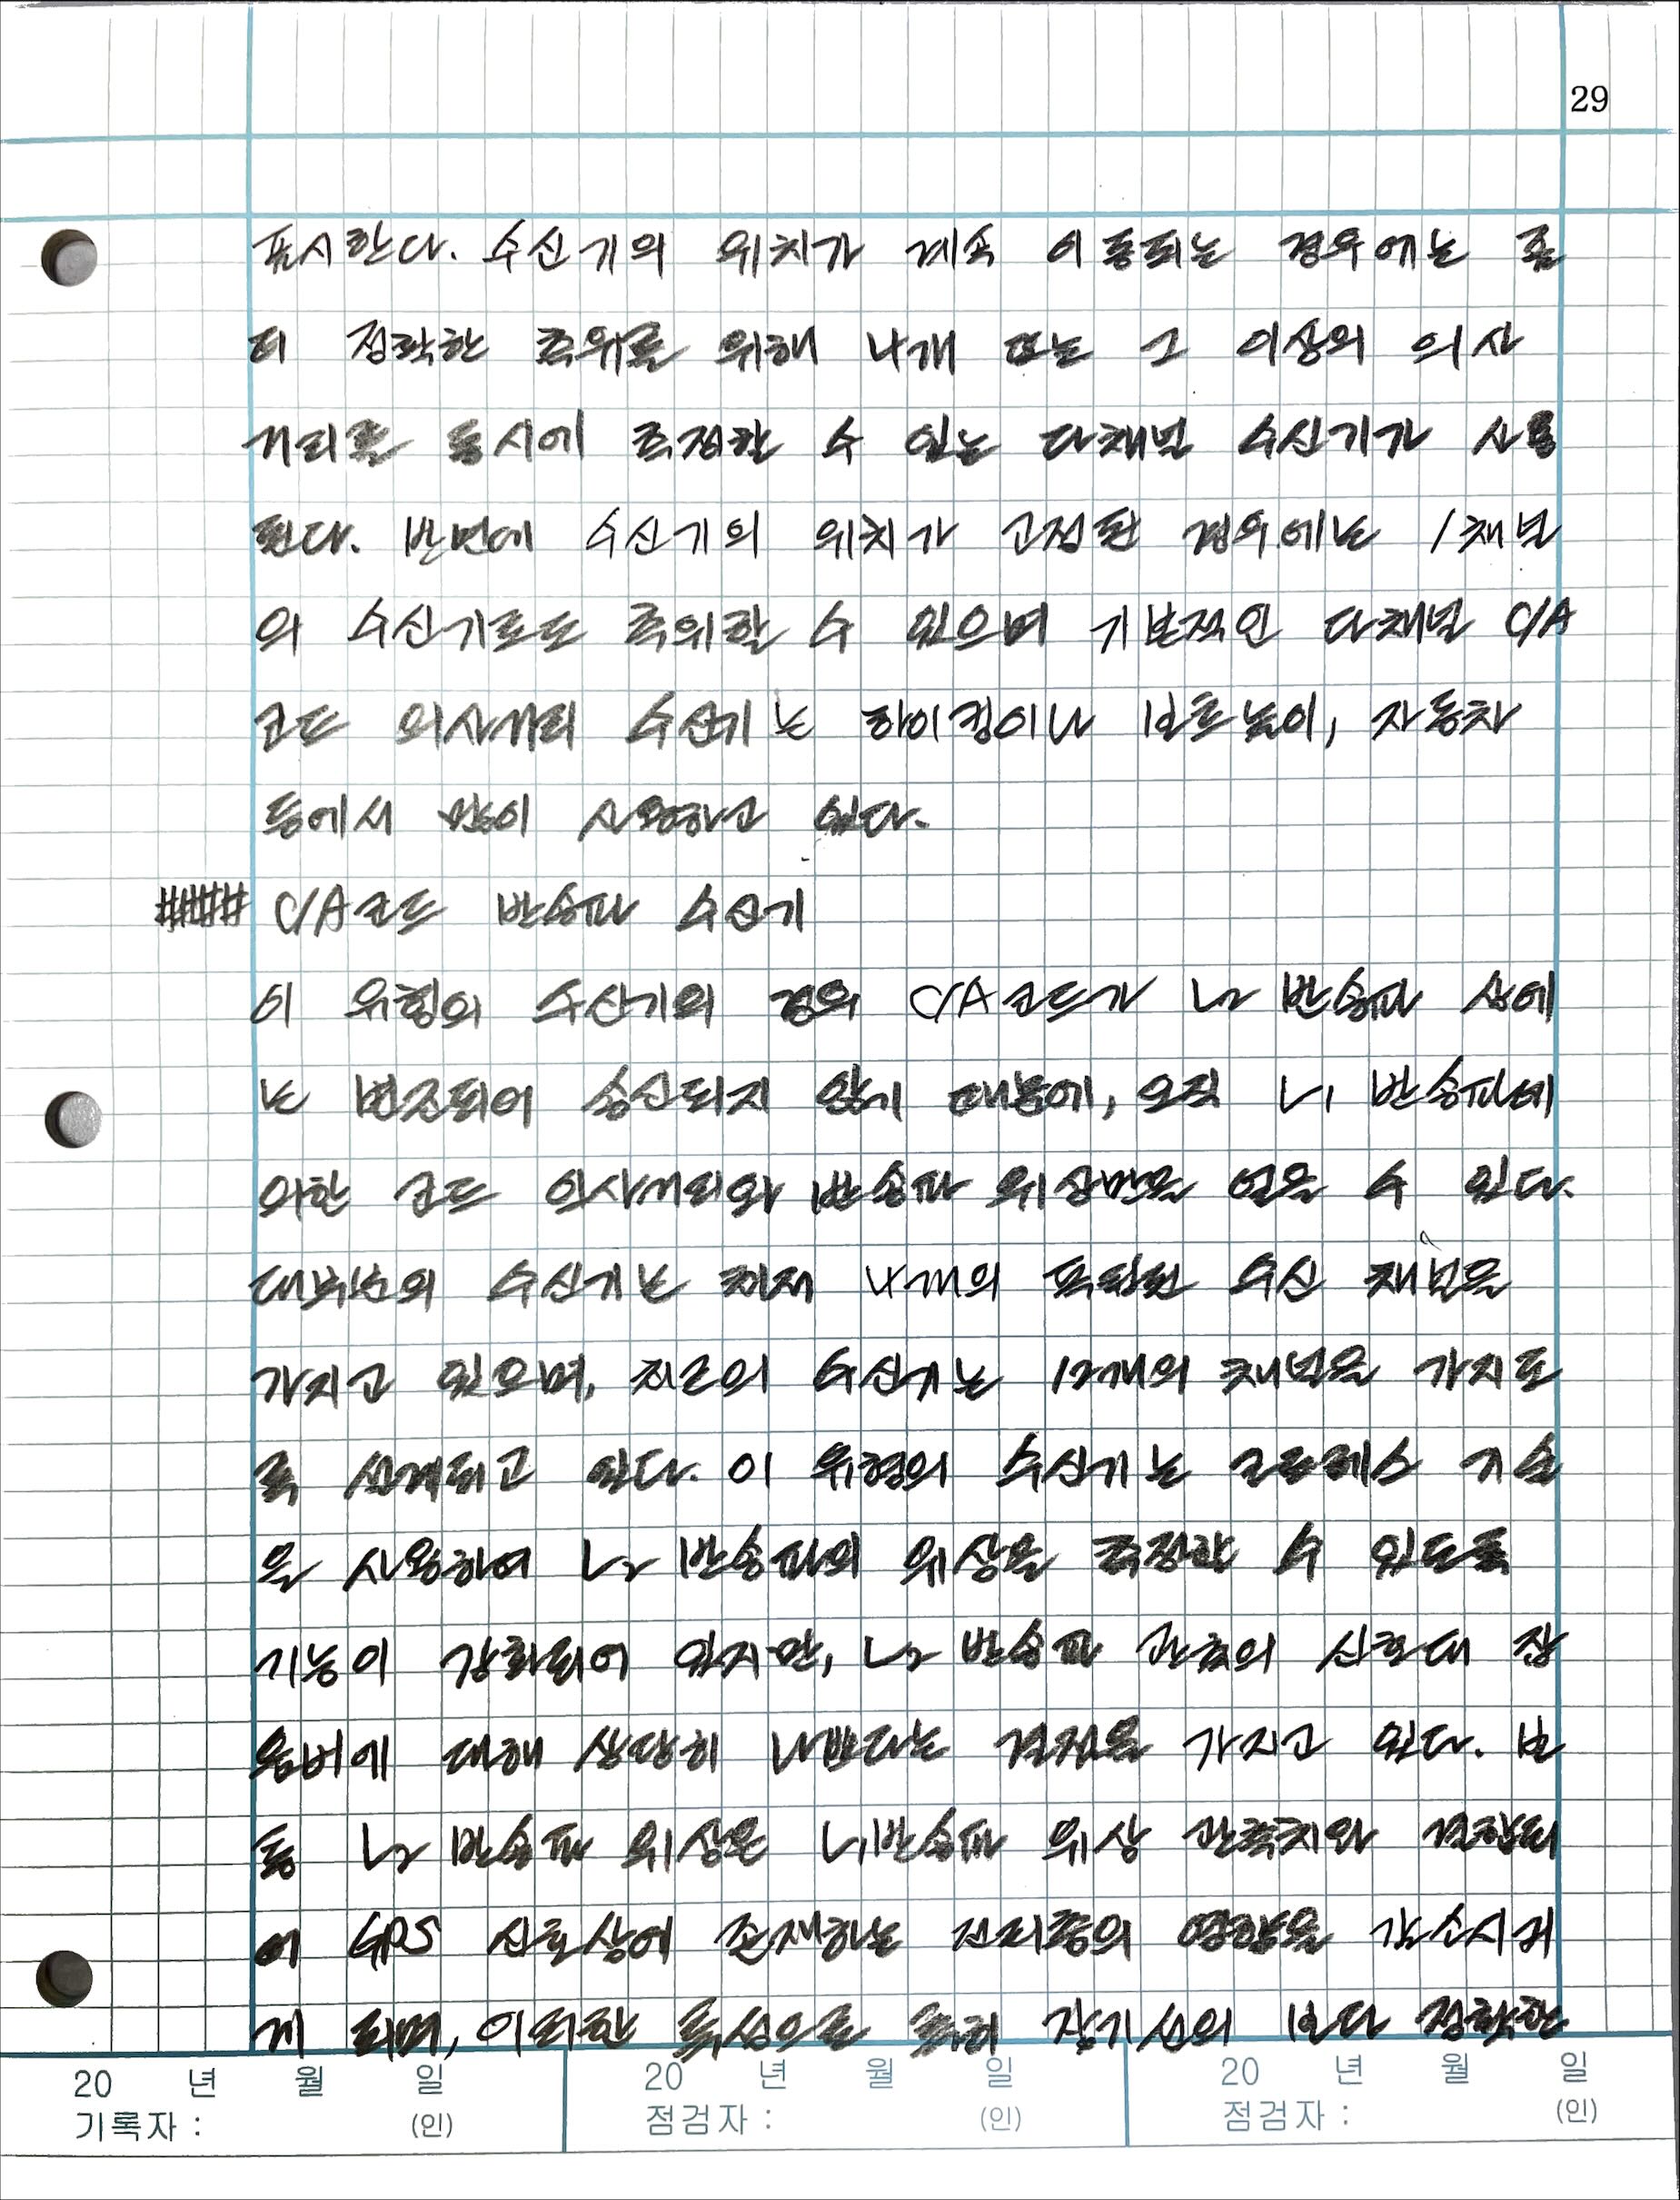 29
표시한다. 수신기의 위치가 계속 이동되는 경우에는 좀
더 정확한 측위를 위해 4개 또는 그 이상의 의사
거리를 동시에 측정할 수 있는 다채널 수신기가 사용
된다. 반면에 수신기의 위치가 고정된 경우에는 1채널
의 수신기로도 측위할 수 있으며 기본적인 다채널 C/A
코드 의사거리 수신기는 하이킹이나 보트놀이, 자동차
등에서 많이 사용하고 있다.
#### C/A코드 반송파 수신기
이 유형의 수신기의 경우 C/A코드가 L2 반송파 상에
는 변조되어 송신되지 않기 때문에, 오직 L1 반송파에
의한 코드 의사거리와 반송파 위상만을 얻을 수 있다.
대부분의 수신기는 최저 4개의 독립된 수신 채널을
가지고 있으며, 최근의 수신기는 12개의 채널을 가지도
록 설계되고 있다. 이 유형의 수신기는 코드레스 기술
을 사용하여 L2 반송파의 위상을 측정할 수 있도록
기능이 강화되어 있지만, L2 반송파 관측의 신호대 잡
음비에 대해 상당히 나쁘다는 결점을 가지고 있다. 보
통 L2 반송파 위상은 L1반송파 위상 관측치와 결합되
어 GPS 신호상에 존재하는 전리층의 영향을 감소시키
게 되며, 이러한 특성으로 통해 장기선의 보다 정확한
20 년 월 일 20 년 월 일 20 년 월 일
기록자 : (인) 점검자 : (인) 점검자 : (인)